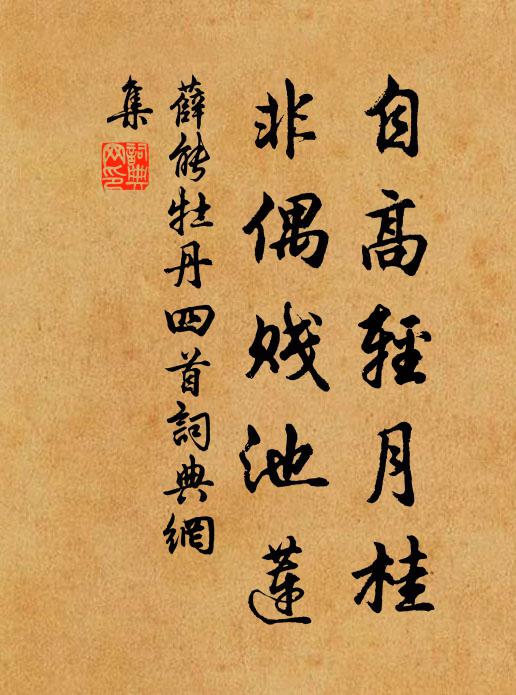 自高輕月桂
非偶賤池蓮
薛能牡丹四首詞典網
集
詞典
网印